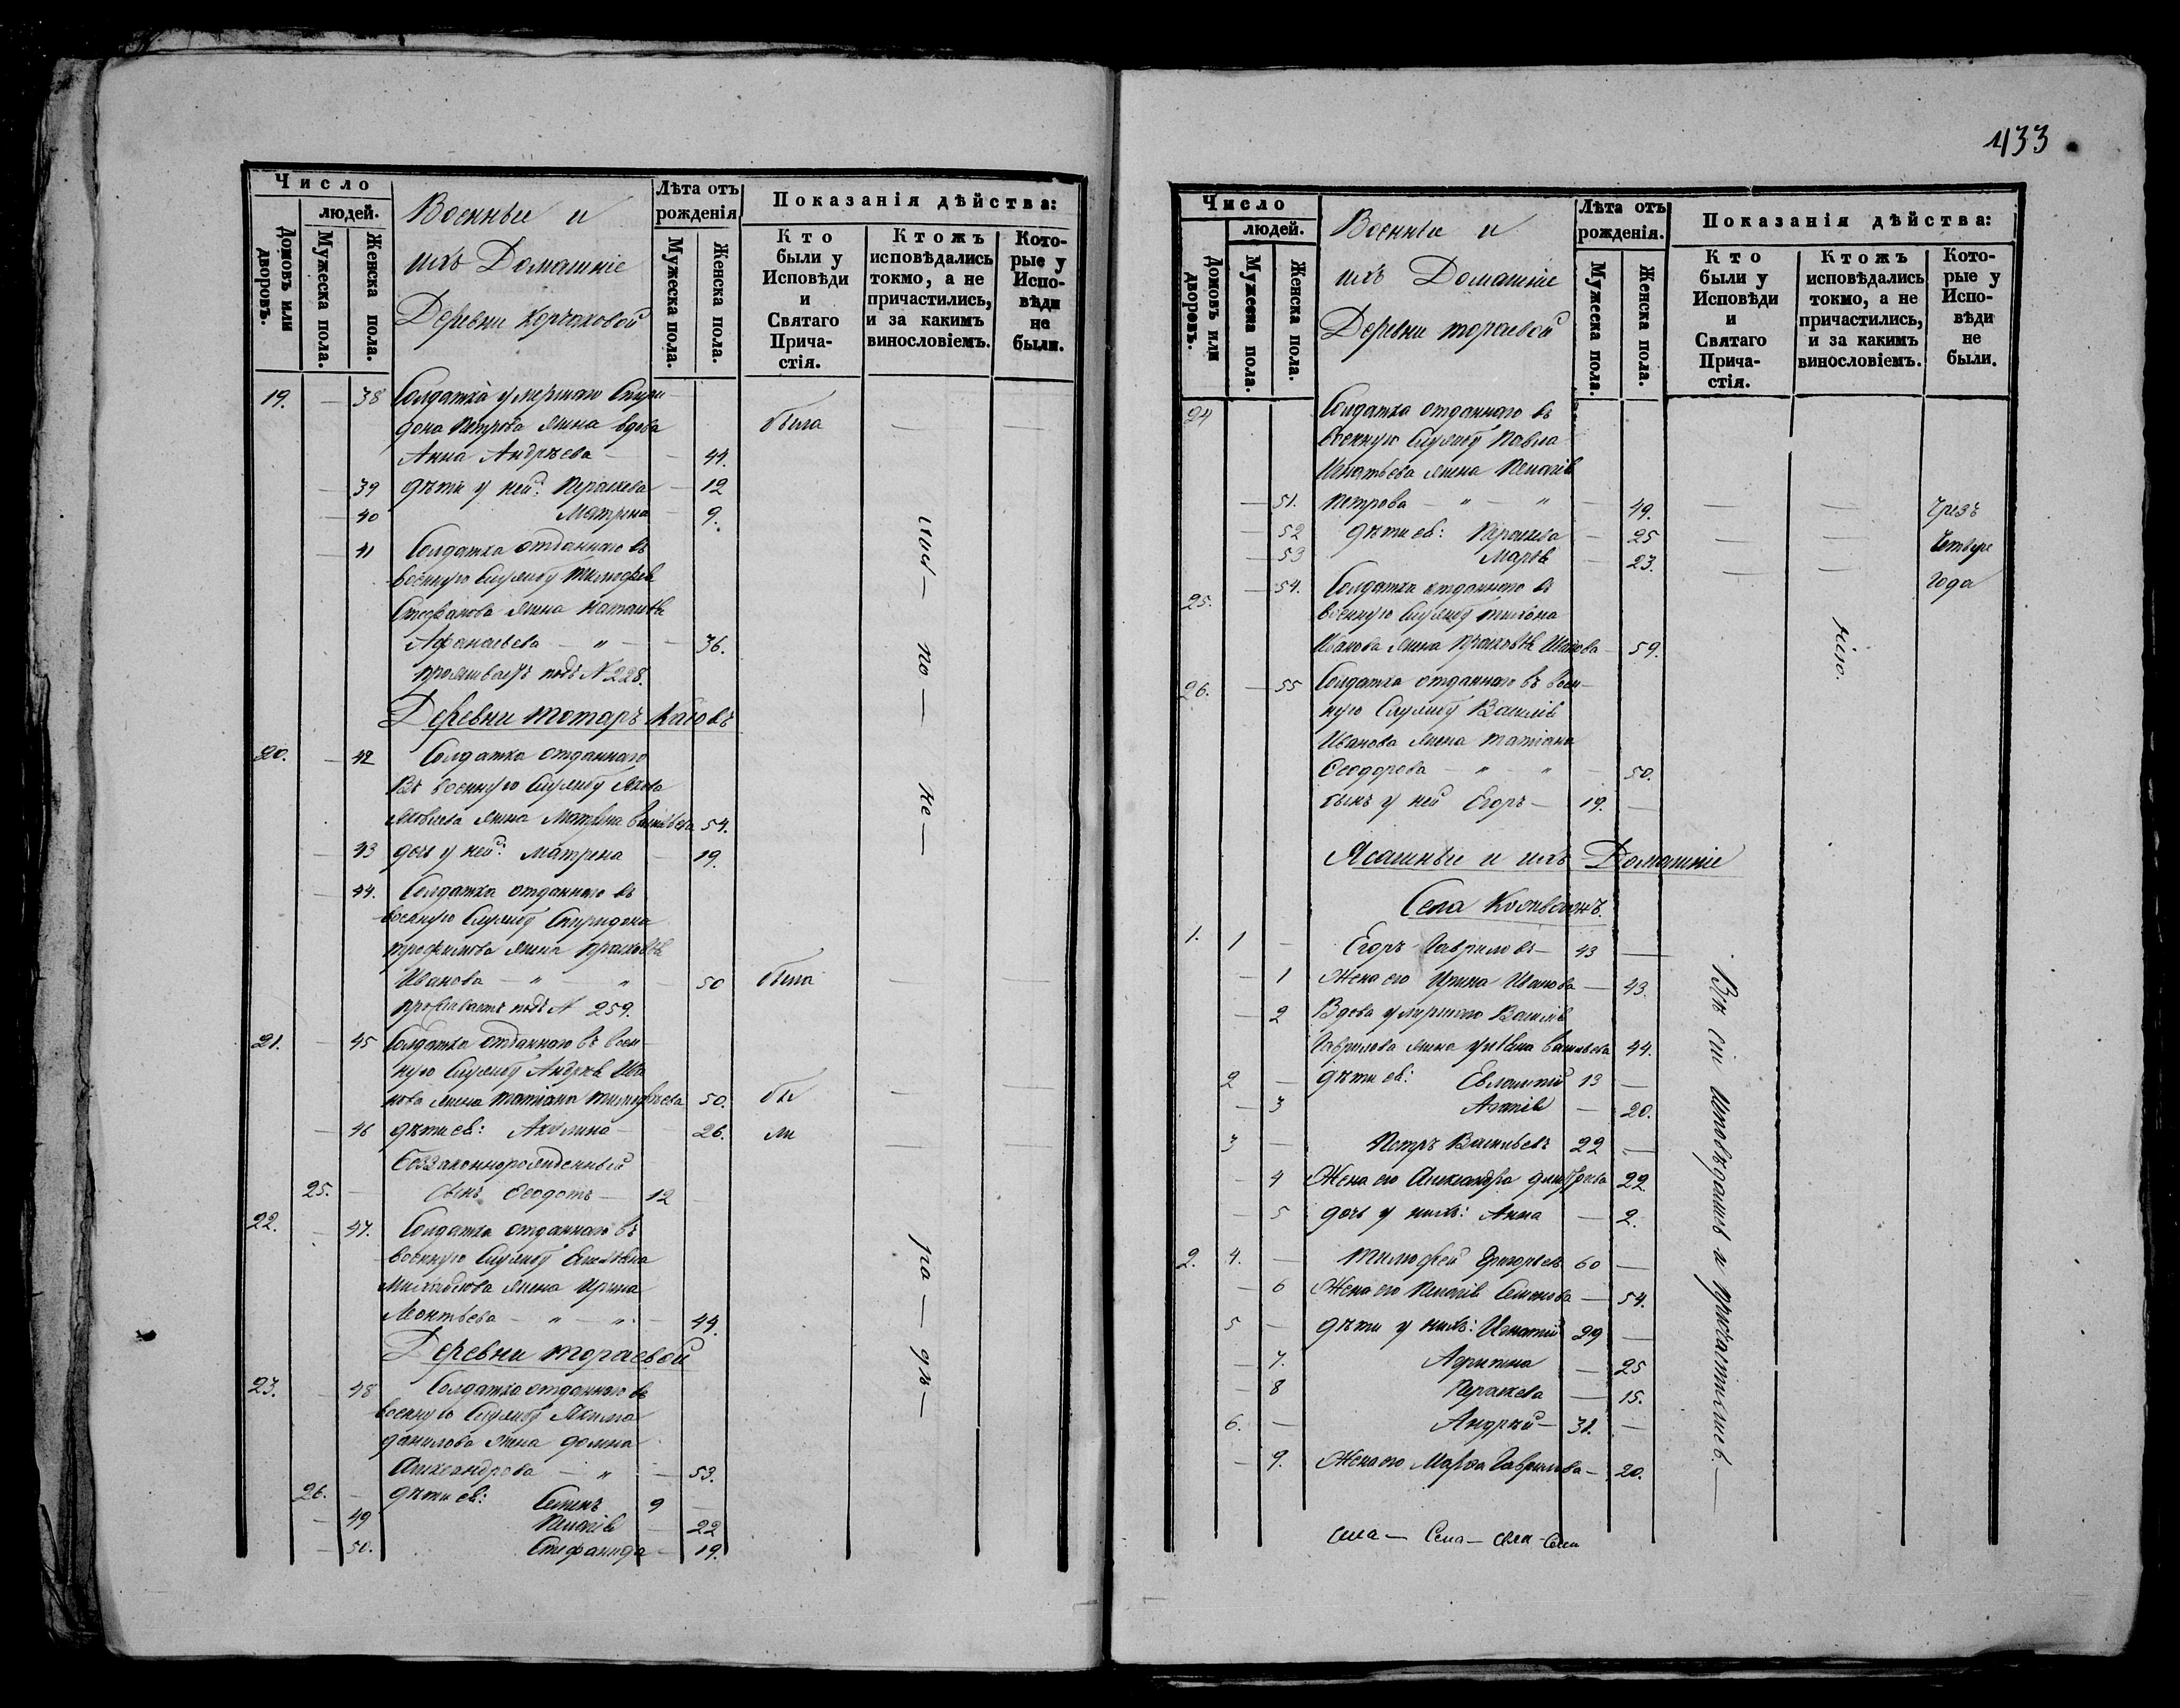 Число
людей.
Домовъ или дворовъ.
Мужеска пола.
Женска пола.
Военныи и
ихъ Домашніе
Деревни Корчаковой
Лѣта отъ
рожденія
Мужеска пола.
Женска пола.
Показанія дѣйства:
Кто
были у
Исповѣди
и
Святаго
Прича-
стія.
Ктожъ
исповѣдались
токмо, а не
причастились,
и за какимъ
винословіемъ.
Кото-
рые у
Испо-
вѣди
не
были.
19. — 38 Солдатка умершаго Спири-
дона Петрова жена вдова была — —
Анна Андреева — 44.
— 39 дѣти у ней: Парасковья — 12
— 40 Матрена — 9.
— 41 Солдатка отданнаго въ
военную Службу Тимофея
Стефанова жена Наталья
Афанасьева — „ — — 36.
проживаетъ подъ № 228.
Деревни Тотаръ
20. — 42 Солдатка отданнаго
Въ военную Службу Якова
Яковлева жена Матрена Васильева 54.
— 43 дочь у ней: Матрена — 19.
— 44. Солдатка отданнаго въ
военную Службу Спиридона
Трофимова жена Прасковья
Иванова — „ — „ — 50 была — —
проживаетъ подъ № 259.
21. — 45 Солдатка отданнаго въ воен-
ную Службу Андрея Ива
нова жена Татіана Тимофеева 50. бы — —
— 46 дѣти ея: Акулина — 26. ли — —
Беззаконнорожденный
25. — сынъ Феодотъ — 12 —
22. — 47. Солдатка отданнаго въ
военную Службу
Михайлова жена Ирина
Леонтьева — „ — „ — 44.
Деревни Тораевой
23. — 48 Солдатка отданнаго въ
военную Службу Якима
Данилова жена Домна
Александрова — „ — 53.
26. — дѣти ея: Семенъ 9 —
— 49 Пелагія — 22
— 50. Стефанида — 19.
но — не — ра — дѣ —
433
Число
людей.
Домовъ или дворовъ.
Мужеска пола.
Женска пола.
Военныи и
ихъ Домашніе
Деревни Тораевой
Лѣта отъ
рожденія.
Мужеска пола.
Женска пола.
Показанія дѣйства:
Кто
были у
Исповѣди
и
Святаго
Прича-
стія.
Ктожъ
исповѣдались
токмо, а не
причастились,
и за какимъ
винословіемъ.
Кото-
рые у
Испо-
вѣди
не
были.
24 Солдатка отданнаго въ
военную Службу Павла
Игнатьева жена Пелагія
— 51. Петрова — „ — „ — 49. — — Чрезъ
— 52 дѣти ея: Парасковья — 25 — — Четыре
— 53 Марѳа — 23. — — Года
25. — 54. Солдатка отданнаго въ
военную Службу Тихона
Иванова жена Прасковья Иванова — 59.
26. — 55 Солдатка отданнаго въ воен-
ную Службу Василія
Иванова жена Татіана
Феодорова — „ — „ — 50.
сынъ у ней Егоръ — 19. —
ніею.
Ясашные и ихъ Домашніе
Села
1. 1 — Егоръ Гавриловъ — 43 —
— 1 Жена его Ирина Иванова — 43.
— 2 Вдова умершаго Василія
Гаврилова жена Ульяна Васильева 44.
2 — дѣти ея: Евлампій 13 —
— 3 Агапія — 20.
3 — Петръ Васильевъ 22 —
— 4 Жена его Александра Дмитріева 22
— 5 дочь у нихъ: Анна — 2.
2. 4. — Тимофей Григорьевъ 60 —
— 6 Жена его Пелагія Семенова — 54.
5 — дѣти у нихъ: Игнатій 29 —
— 7. Агрипина — 25
— 8 Парасковья — 15.
6. — Андрей — 31. —
— 9. Жена его Марѳа Гаврилова — 20.
Всѣ сіи исповѣдались и причастились —
Села — Села — Села — Села